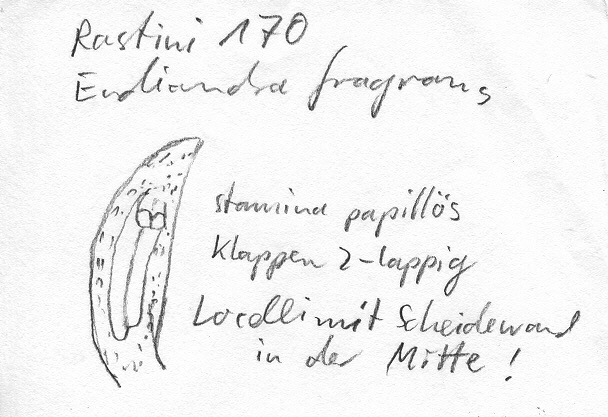 Rastini 170
Endiandra fragrans
stamina papillös
Klappen 2-lappig
Locelli mit Scheidewand
in der Mitte !